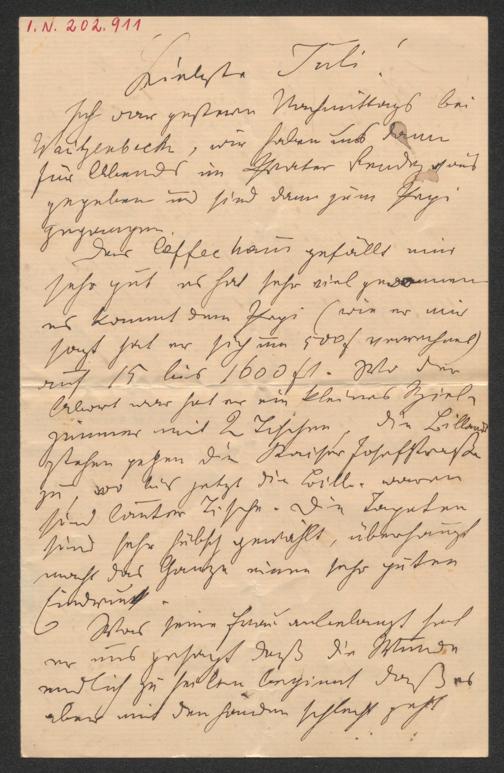 I.N. 202.911
Liebste Juli!
Ich war gestern Nachmittags bei
, wir haben uns dann
für Abends im Prater Rendezvous
gegeben und sind dann zum Pepi
gegangen.
Das Caffeehaus gefällt mir
sehr gut es hat sehr viel gewonnen
es kommt dem Pepi (wie er mir
sagt hat er sich um 500f verrechnet)
auf 15 bis 1600 fl. Wo der
Abort war hat er ein kleines Spiel-
zimmer mit 2 Tischen, die Billards
stehen gegen die Kaiser Josefstraße
zu, wo bis jetzt die Bill. waren
sind lauter Tische. Die Tapeten
sind sehr hübsch gewählt, überhaupt
macht das Ganze einen sehr guten
Eindruck.
Was seine Frau anbelangt hat
er uns gesagt daß die Wunde
endlich zu heilen beginnt daß es
aber mit den Händen schlecht geht